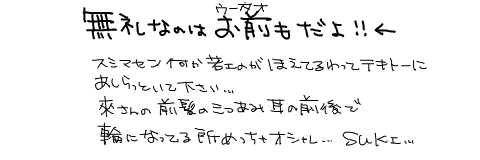 ウータオ
無礼なのはお前もだよ!!←
スミマセン何か若エのがほえてるわってテキトーに
あしらっといて下さい…
來さんの前髪の三つあみ耳の前後で
輪になってる所めっちゃオシャレ… SUKI…